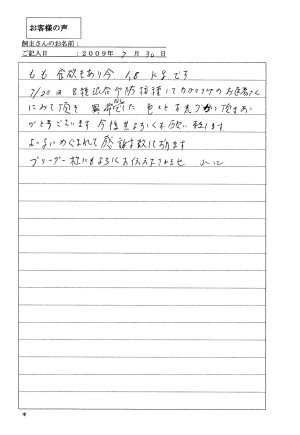 お客様の声
飼主さんのお名前：
ご記入日　：２００９年 7 月 30 日
もも 食欲もあり今 1,8 kgです
7/20日 8種混合予防接種してかかりつけのお医者さん
にみて頂き 異常 た
がとうございます 今後共よろしくお願い致します
めぐまれて感謝致して居ります
ブリーダー様にもよろしくお伝え下さいませ
*